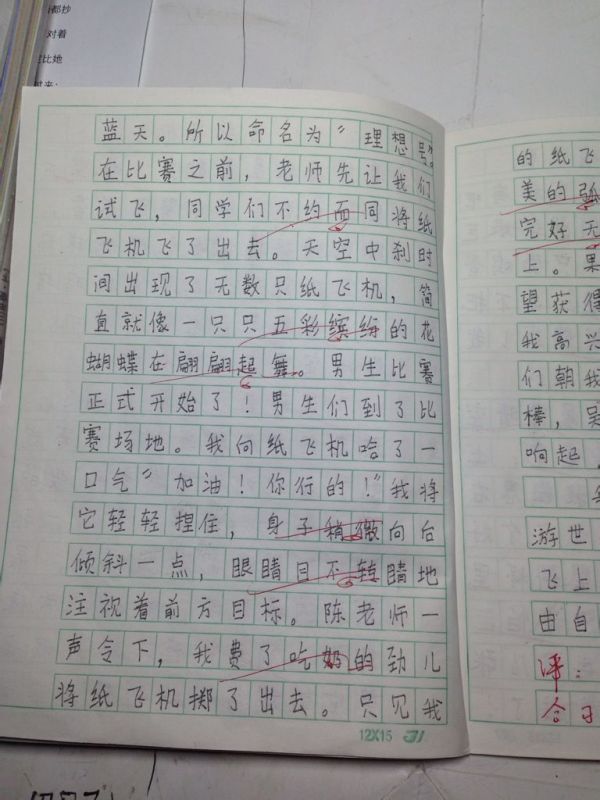 都抄
对着
比她
蓝天。所以命名为"理想号"。
在比赛之前，老师先让我们
试飞，同学们不约而同将纸
飞机飞了出去。天空中刹时
间出现了无数只纸飞机，简
直就像一只只五彩缤纷的花
蝴蝶在翩翩起舞。男生比赛
正式开始了！男生们到了比
赛场地。我向纸飞机哈了一
口气"加油！你行的！"我将
它轻轻捏住，身子稍微向后
倾斜一点，眼睛目不转睛地
注视着前方目标。陈老师一
声令下，我费了吃奶的劲儿
将纸飞机掷了出去。只见我
12X15
的纸飞
美的弧
完好无
上。果
望获得
我高兴
们朝我
棒，吴
响起，
游世
飞上
由自
评：